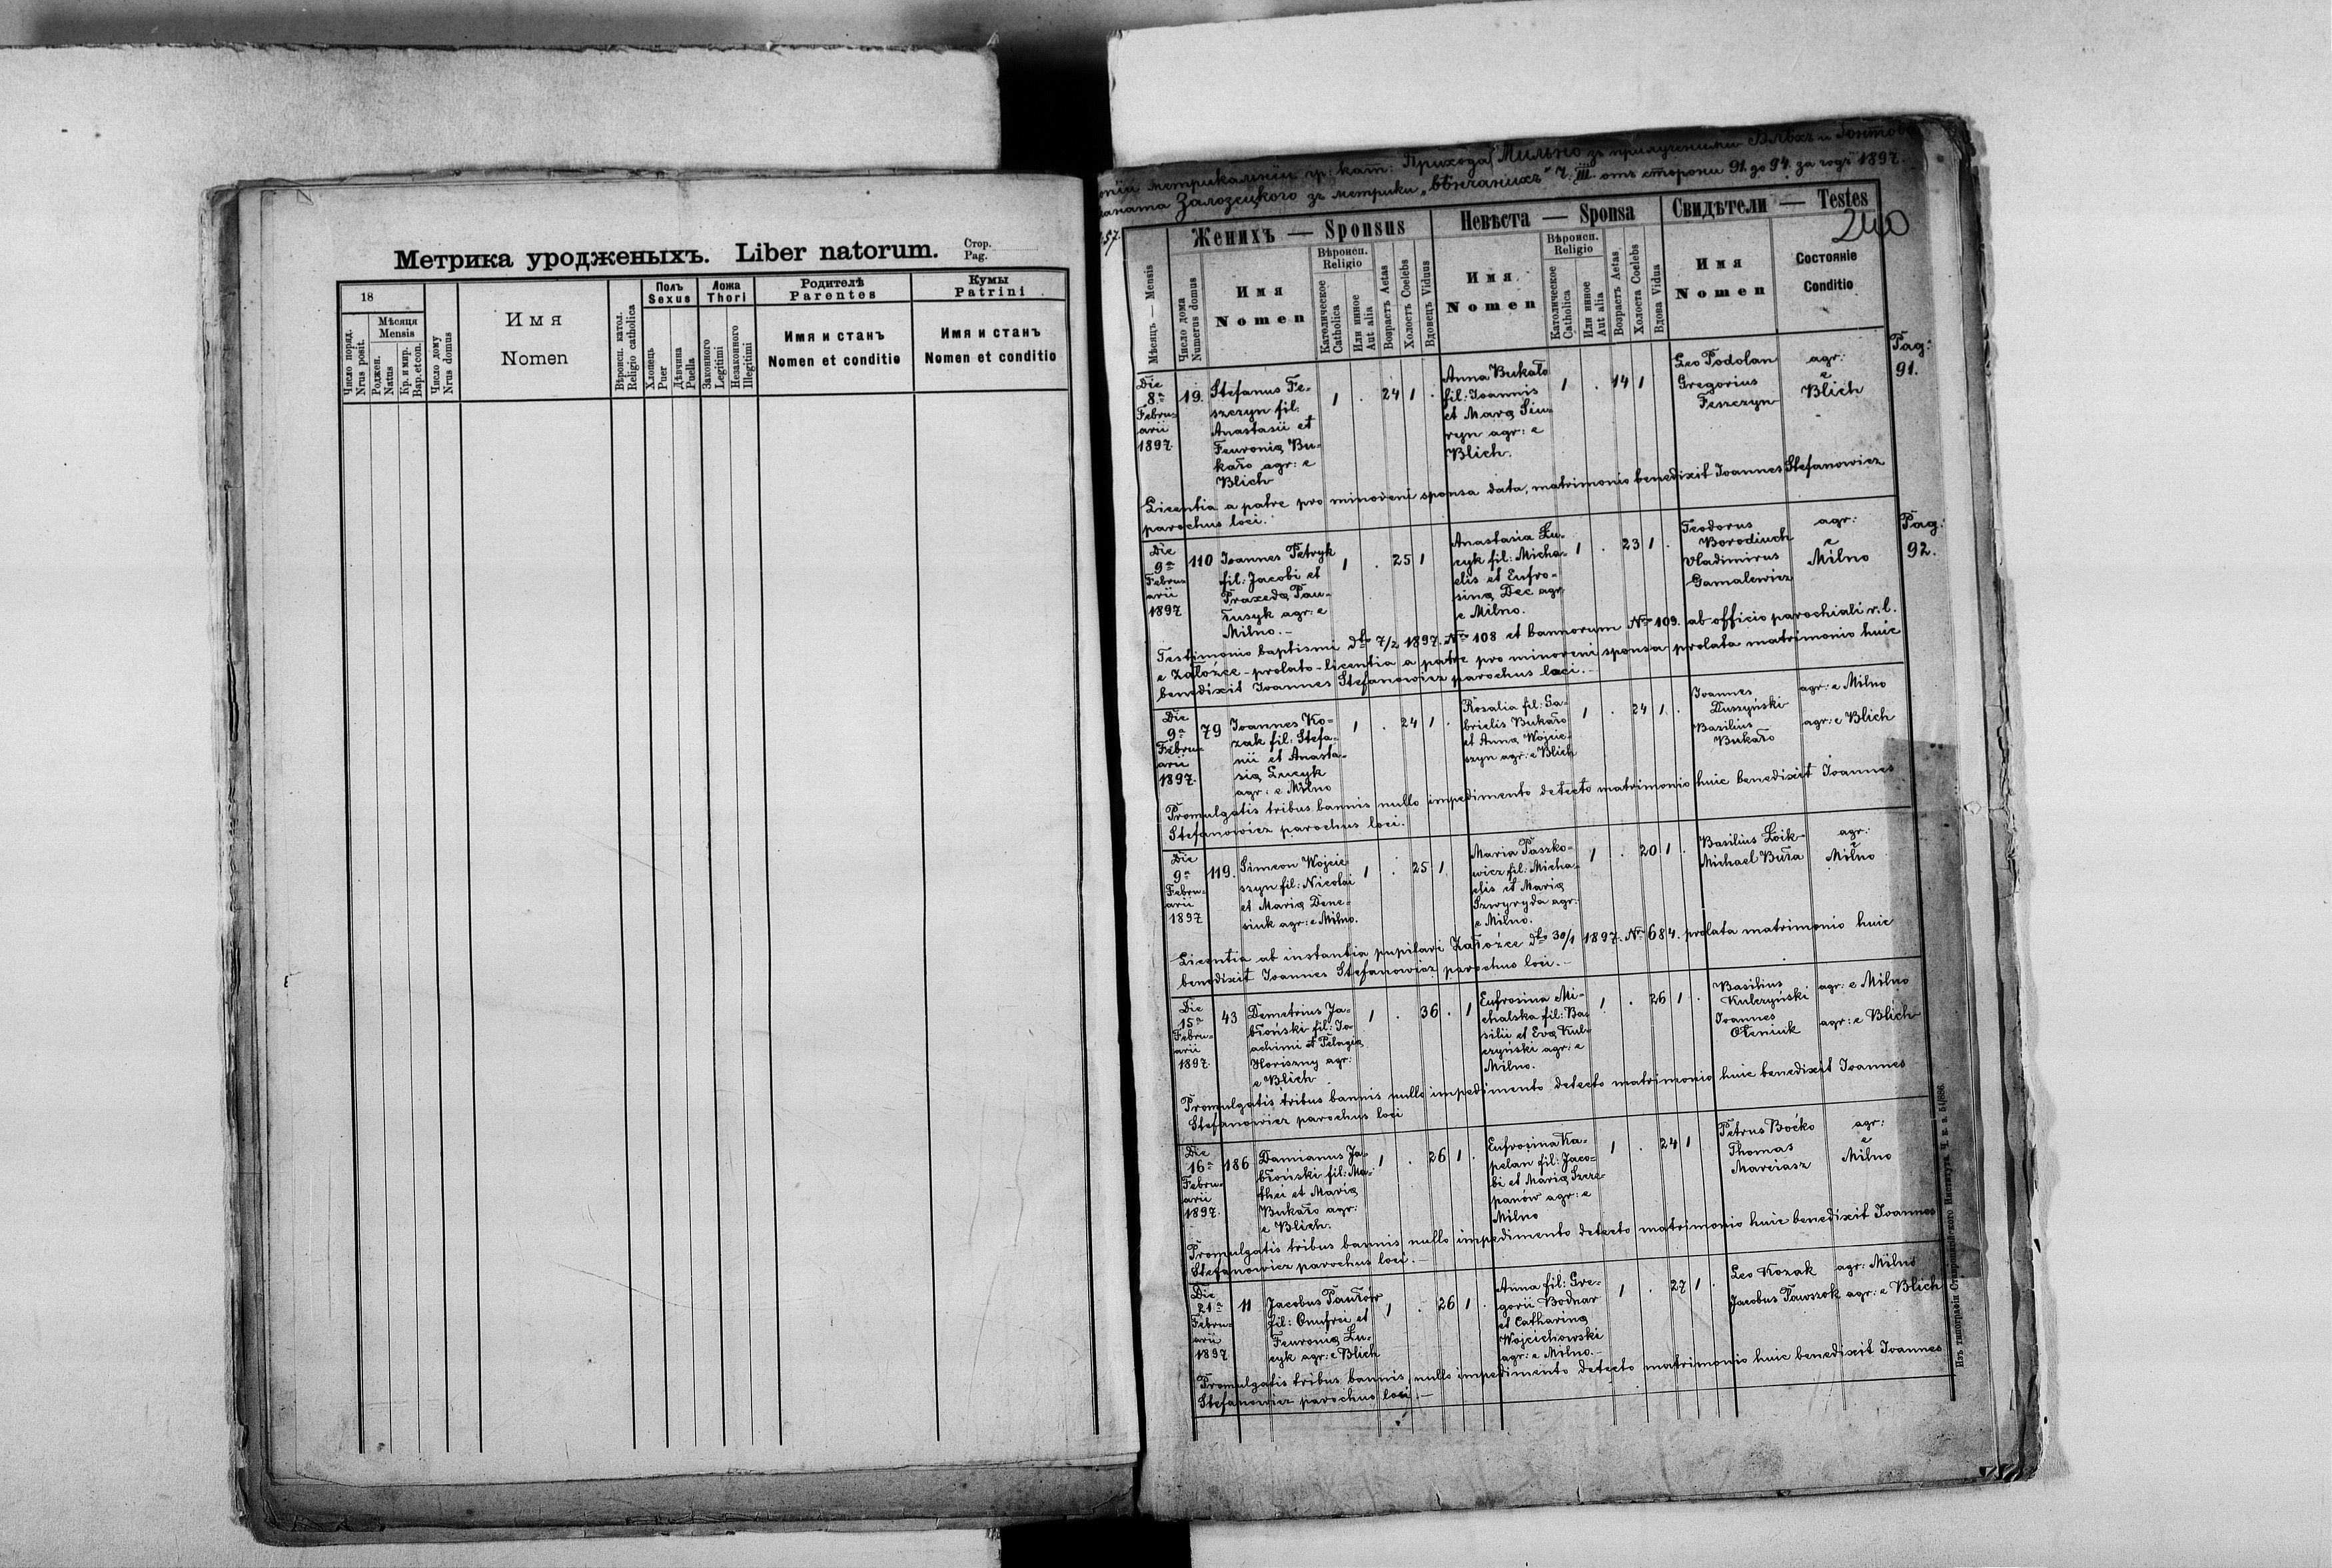 Метрика уродженыхъ. Liber natorum. Стор. Pag.
18
Число поряд. Nrus posit.
Мѣсяця Mensis
Роджен. Natus
Кр. и мѵр. Bap. et con.
Число дому Nrus domus
Имя Nomen
Вѣроисп. катол. Religio catholica
Полъ Sexus
Хлопець Puer
Дѣвчина Puella
Ложа Thori
Законного Legitimi
Незаконного Illegitimi
Родителѣ Parentes
Имя и станъ Nomen et conditio
Кумы Patrini
Имя и станъ Nomen et conditio
метрикальніи гр: кат: Прихода Мильно зъ прилученими Блѣхъ и
Залозецкого зъ метрики „вѣнчанихъ" Ч. III. отъ сторони 91. до 94. за годъ 1897.
240
57.
Женихъ — Sponsus
Невѣста — Sponsa
Свидѣтели — Testes
Мѣсяцъ — Mensis
Число дома Numerus domus
Имя Nomen
Вѣроисп. Religio
Католическое Catholica
Или инное Aut alia
Возрастъ Aetas
Холостъ Coelebs
Вдовецъ Viduus
Имя Nomen
Вѣроисп. Religio
Католическое Catholica
Или инное Aut alia
Возрастъ Aetas
Холоста Coelebs
Вдова Vidua
Имя Nomen
Состояніе Conditio
Pag: 91.
Die 8ª Februarii 1897.
19.
Stefanus Fe-
szczyn fil:
Anastasii et
Feuronią Bu-
kało agr: e
Blich
1 . 24 1 .
Anna Bukało
fil: Joannis
et Marą Siu-
ryn agr: e
Blich.
1 . 14 1
Leo Podolan
Gregorius
Feszczyn
agr:
e
Blich
Licentia a patre pro minoreni sponsa data, matrimonio benedixit Joannes Stefanowicz
parochus loci.
Pag: 92.
Die
9ª
Febru-
arii
1897
110
Joannes Petryk
fil: Jacobi et
Praxedą Pau-
łusyk agr: e
Milno. —
1 . 25 1
Anastasia Łu-
cyk fil: Micha-
elis et Eufro-
siną Dec agr
e Milno.
1 . 23 1 .
Teodorus
Borodiuch
Vladimirus
Gamalewicz
agr:
e
Milno
Testimonio baptismi dto 7/2 1897. Nro 108 et bannorum Nro 109. ab officio parochiali r. l.
e Załoźce - prolato - licentia a patre pro minoreni sponsa prolata matrimonio huic
benedixit Joannes Stefanowicz parochus loci. —
Die
9ª
Febru-
arii
1897.
79
Joannes Ko-
zak fil: Stefa-
nii et Anasta-
sią Łucyk
agr: e Milno
1 . 24 1 .
Rosalia fil: Ga-
brielis Bukało
et Anną Wojcie-
szyn agr: e Blich
1 . 24 1 .
Joannes
Duszyński
Basilius
Bukało
agr: e Milno
agr: e Blich
Promulgatis tribus bannis nullo impedimento detecto matrimonio huic benedixit Joannes
Stefanowicz parochus loci.
Die
9ª
Febru-
arii
1897
119.
Simeon Wojcie
szyn fil: Nicolai
et Marią Dene-
siuk agr: e Milno.
1 . 25 1
Maria Paszko-
wicz fil: Micha-
elis et Marią
Szwyryda agr:
e Milno.
1 . 20 1 .
Basilius Łoik
Michael Buła
agr:
e
Milno
Licentia ab instantia pupilari Załoźce dto 30/1 1897. Nro 684. prolata matrimonio huic
benedixit Joannes Stefanowicz parochus loci. —
Die
15ª
Febru-
arii
1897.
43
Demetrius Ja-
błoński fil: Jo-
achimi et Pelagią
Horiszny agr:
e Blich
1 . 36 . 1
Eufrosina Mi-
chalska fil: Ba-
silii et Evą Kul-
czynski agr: e
Milno.
1 . 26 1 .
Basilius
Kulczyński
Joannes
Ołeniuk
agr: e Milno
agr: e Blich
Promulgatis tribus bannis nullo impedimento detecto matrimonio huic benedixit Joannes
Stefanowicz parochus loci
Die
16ª
Febru-
arii
1897.
186
Damianus Ja-
błoński fil: Ma-
thei et Marią
Bukało agr:
e Blich.
1 . 26 1 .
Eufrosina Ka-
pelan fil: Jaco-
bi et Marią Szcze-
panów agr: e
Milno
1 . 24 1
Petrus Boćko
Thomas
Marciasz
agr:
e
Milno
Promulgatis tribus bannis nullo impedimento detecto matrimonio huic benedixit Joannes
Stefanowicz parochus loci. —
Die
21ª
Febru-
arii
1897
11
Jacobus Pawłów
fil: Onufrei et
Feuronią Łu-
cyk agr: e Blich
1 . 26 1 .
Anna fil: Gre-
gorii Bodnar
et Catharina
Wojcichowski
agr: e Milno. —
1 . 27 1 .
Leo Kozak agr: Milno
Jacobus Pawszok agr: e Blich
Promulgatis tribus bannis, nullo impedimento detecto matrimonio huic benedixit Joannes
Stefanowicz parochus loci. —
Изъ типографіи Ставропигійского Института. Ч. в. з. 51/886.